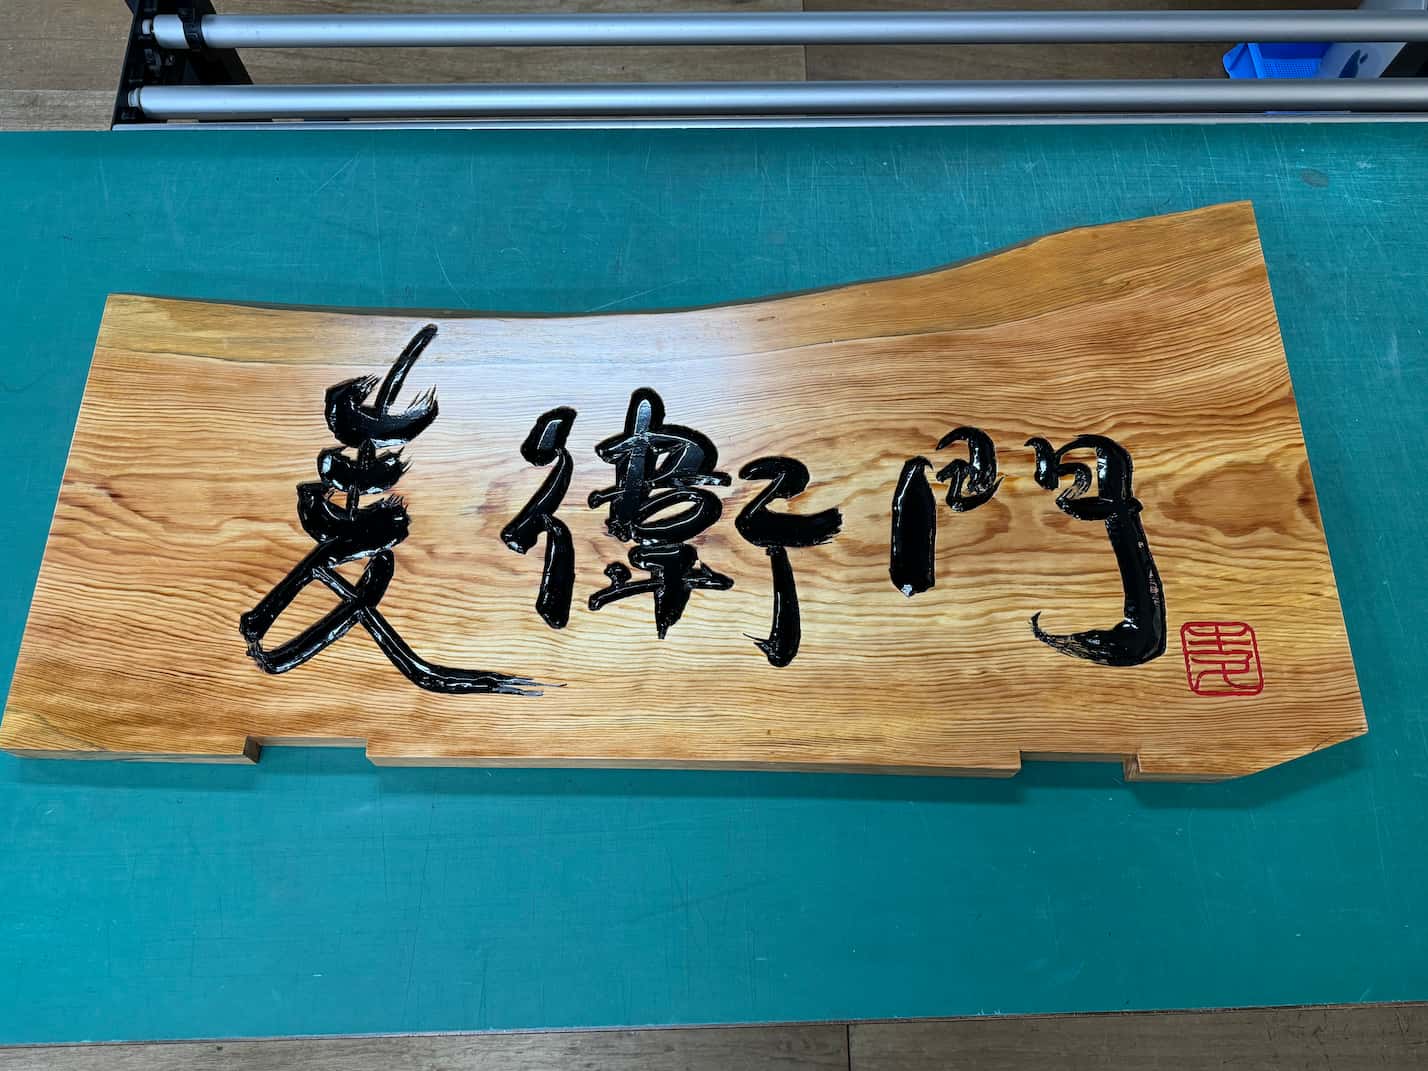 麦衛門